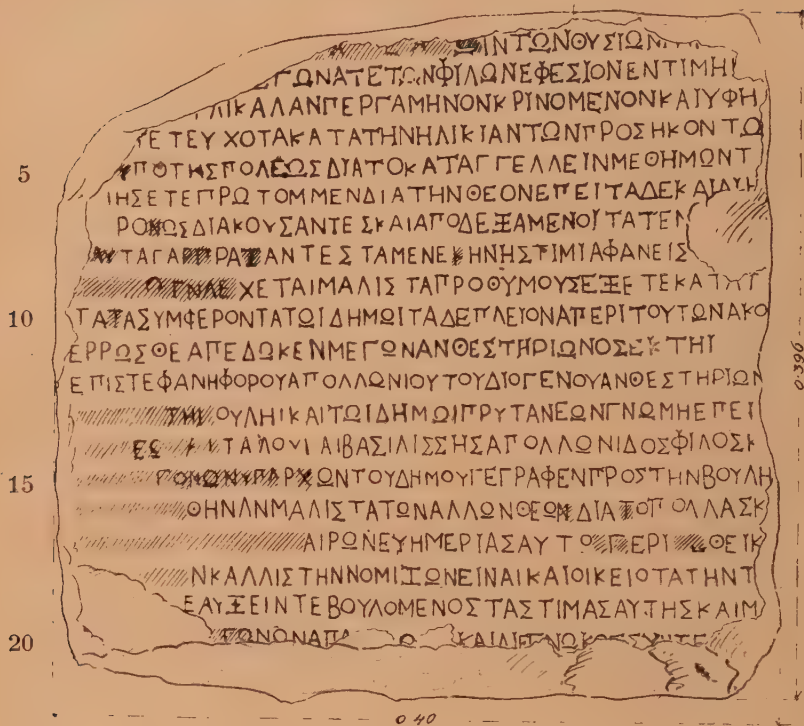 ΙΝΤΩΝΘΥΣΙΩΝ
ΓΩΝΑΤΕΤΩΝΦΙΛΩΝΕΦΕΣΙΟΝΕΝΤΙΜΗΙ
ΛΙΚΑΛΑΝΠΕΡΓΑΜΗΝΟΝΚΡΙΝΟΜΕΝΟΝΚΑΙΥΦΗ
ΤΕΤΕΥΧΟΤΑΚΑΤΑΤΗΝΗΛΙΚΙΑΝΤΩΝΠΡΟΣΗΚΟΝΤΩ
5 ΥΠΟΤΗΣΠΟΛΕΩΣΔΙΑΤΟΚΑΤΑΓΓΕΛΛΕΙΝΜΕΘΗΜΩΝΤ
ΙΗΣΕΤΕΠΡΩΤΟΜΜΕΝΔΙΑΤΗΝΘΕΟΝΕΠΕΙΤΑΔΕΚΑΙΔΙΗ
ΡΟΝΩΣΔΙΑΚΟΥΣΑΝΤΕΣΚΑΙΑΠΟΔΕΞΑΜΕΝΟΙΤΑΤΕΝ
ΤΑΓΑΡΠΡΑΞΑΝΤΕΣΤΑΜΕΝΕΚΗΝΗΣΤΙΜΙΑΦΑΝΕΙΣ
ΧΕΤΑΙΜΑΛΙΣΤΑΠΡΟΘΥΜΟΥΣΕΞΕΤΕΚΑ
10 ΤΑΤΑΣΥΜΦΕΡΟΝΤΑΤΩΙΔΗΜΩΙΤΑΔΕΠΛΕΙΟΝΑΠΕΡΙΤΟΥΤΩΝΑΚΟ
ΕΡΡΩΣΘΕΑΠΕΔΩΚΕΝΜΕΓΩΝΑΝΘΕΣΤΗΡΙΩΝΟΣΕΚΤΗΙ
ΕΠΙΣΤΕΦΑΝΗΦΟΡΟΥΑΠΟΛΛΩΝΙΟΥΤΟΥΔΙΟΓΕΝΟΥΑΝΘΕΣΤΗΡΙΩΝ
ΤΗΙ ΟΥΛΗΙΚΑΙΤΩΙΔΗΜΩΙΠΡΥΤΑΝΕΩΝΓΝΩΜΗΕΠΕΙ
ΤΑΛΟΥ ΑΙΒΑΣΙΛΙΣΣΗΣΑΠΟΛΛΩΝΙΔΟΣΦΙΛΟΣΚ
15 ΓΟΝΩΝΥΠΑΡΧΩΝΤΟΥΔΗΜΟΥΓΕΓΡΑΦΕΝΠΡΟΣΤΗΝΒΟΥΛΗ
ΘΗΝΑΝΜΑΛΙΣΤΑΤΩΝΑΛΛΩΝΘΕΩΝΔΙΑΤΟΠΟΛΛΑΣΚ
ΑΙΡΩΝΕΥΗΜΕΡΙΑΣΑΥΤΟ ΠΕΡΙ ΘΕΙΚ
ΝΚΑΛΛΙΣΤΗΝΝΟΜΙΖΩΝΕΙΝΑΙΚΑΙΟΙΚΕΙΟΤΑΤΗΝΤ
ΕΑΥΞΕΙΝΤΕΒΟΥΛΟΜΕΝΟΣΤΑΣΤΙΜΑΣΑΥΤΗΣΚΑΙΜ
20 ΓΩΝΟΝΑΠ ΚΑΙΔΙΕΓΝΩΚΟΤ
0·396
0·40